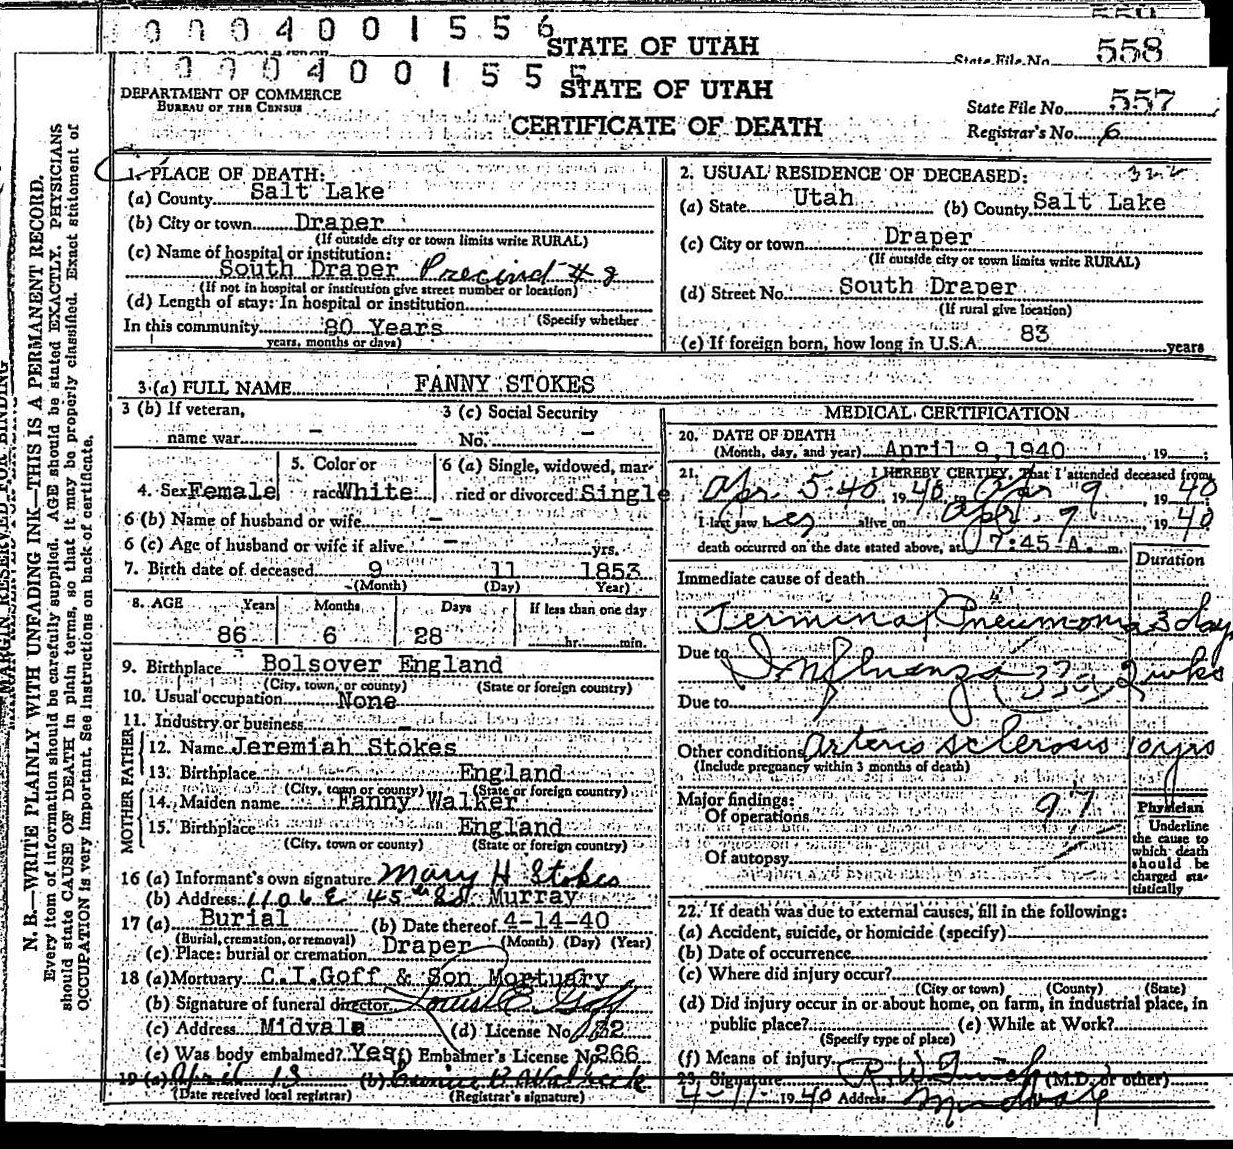 0 0 0 4 0 0 1 5 5 6
STATE OF UTAH
State File No. 558
0 0 0 4 0 0 1 5 5 5
STATE OF UTAH
DEPARTMENT OF COMMERCE
BUREAU OF THE CENSUS
CERTIFICATE OF DEATH
State File No. 557
Registrar's No. 6
MARGIN RESERVED FOR BINDING
N. B.—WRITE PLAINLY WITH UNFADING INK—THIS IS A PERMANENT RECORD.
Every item of information should be carefully supplied. AGE should be stated EXACTLY. PHYSICIANS
should state CAUSE OF DEATH in plain terms, so that it may be properly classified. Exact statement of
OCCUPATION is very important. See instructions on back of certificate.
1. PLACE OF DEATH:
(a) County Salt Lake
(b) City or town Draper
(If outside city or town limits write RURAL)
(c) Name of hospital or institution:
South Draper Precinct # 8
(If not in hospital or institution give street number or location)
(d) Length of stay: In hospital or institution
(Specify whether
In this community 80 Years
years, months or days)
2. USUAL RESIDENCE OF DECEASED: 322
(a) State Utah (b) County Salt Lake
(c) City or town Draper
(If outside city or town limits write RURAL)
(d) Street No. South Draper
(If rural give location)
(e) If foreign born, how long in U.S.A. 83 years
3 (a) FULL NAME FANNY STOKES
3 (b) If veteran, 3 (c) Social Security
name war - No. -
4. Sex Female 5. Color or race White 6 (a) Single, widowed, married or divorced Single
6 (b) Name of husband or wife -
6 (c) Age of husband or wife if alive - yrs.
7. Birth date of deceased 9 11 1853
(Month) (Day) Year)
8. AGE Years Months Days If less than one day
86 6 28 hr. min.
9. Birthplace Bolsover England
(City, town, or county) (State or foreign country)
10. Usual occupation None
11. Industry or business -
FATHER
12. Name Jeremiah Stokes
13. Birthplace England
(City, town or county) (State or foreign country)
MOTHER
14. Maiden name Fanny Walker
15. Birthplace England
(City, town or county) (State or foreign country)
16 (a) Informant's own signature Mary H Stokes
(b) Address 1106 E 45th So Murray
17 (a) Burial (b) Date thereof 4-14-40
(Burial, cremation, or removal) (Month) (Day) (Year)
(c) Place: burial or cremation Draper
18 (a) Mortuary C.I.Goff & Son Mortuary
(b) Signature of funeral director Goff
(c) Address Midvale (d) License No. 132
(e) Was body embalmed? Yes (f) Embalmer's License No. 266
19 (a) April 13 (b)
(Date received local registrar) (Registrar's signature)
MEDICAL CERTIFICATION
20. DATE OF DEATH
(Month, day, and year) April 9, 1940 , 19 ;
21. I HEREBY CERTIFY, That I attended deceased from
Apr. 5-40 19 40, to Apr 9 19 40
I last saw h er alive on Apr. 7 19 40
death occurred on the date stated above, at 7:45 A. m.
Duration
Immediate cause of death
Terminal Pneumonia 3 days
Due to Influenza 33a 2 wks
Due to
Other conditions Arterio sclerosis 10 yrs
(Include pregnancy within 3 months of death)
Major findings:
Of operations 97
Of autopsy
Physician
Underline
the cause to
which death
should be
charged sta-
tistically
22. If death was due to external causes, fill in the following:
(a) Accident, suicide, or homicide (specify)
(b) Date of occurrence
(c) Where did injury occur?
(City or town) (County) (State)
(d) Did injury occur in or about home, on farm, in industrial place, in
public place? (e) While at Work?
(Specify type of place)
(f) Means of injury
23. Signature (M.D. or other)
4-11- 1940 Address Midvale